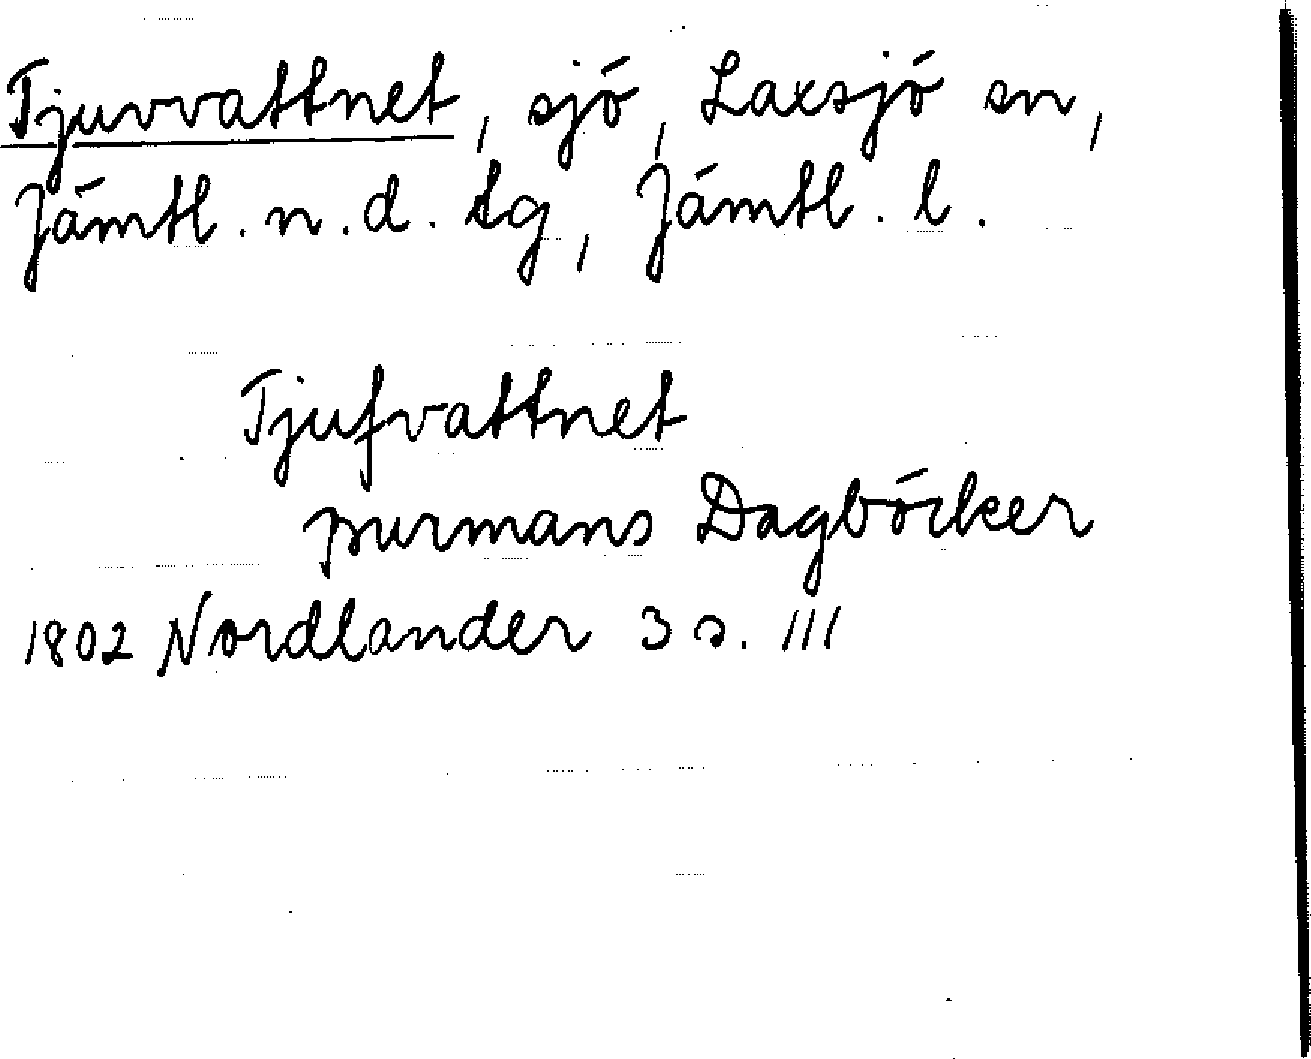 Tjuvvattnet, sjö, Laxsjö sn,
Jämtl. n. d. tg, Jämtl. l.
Tjufvattnet
purmans Dagböcker
1802 Nordlander 3 s. 111